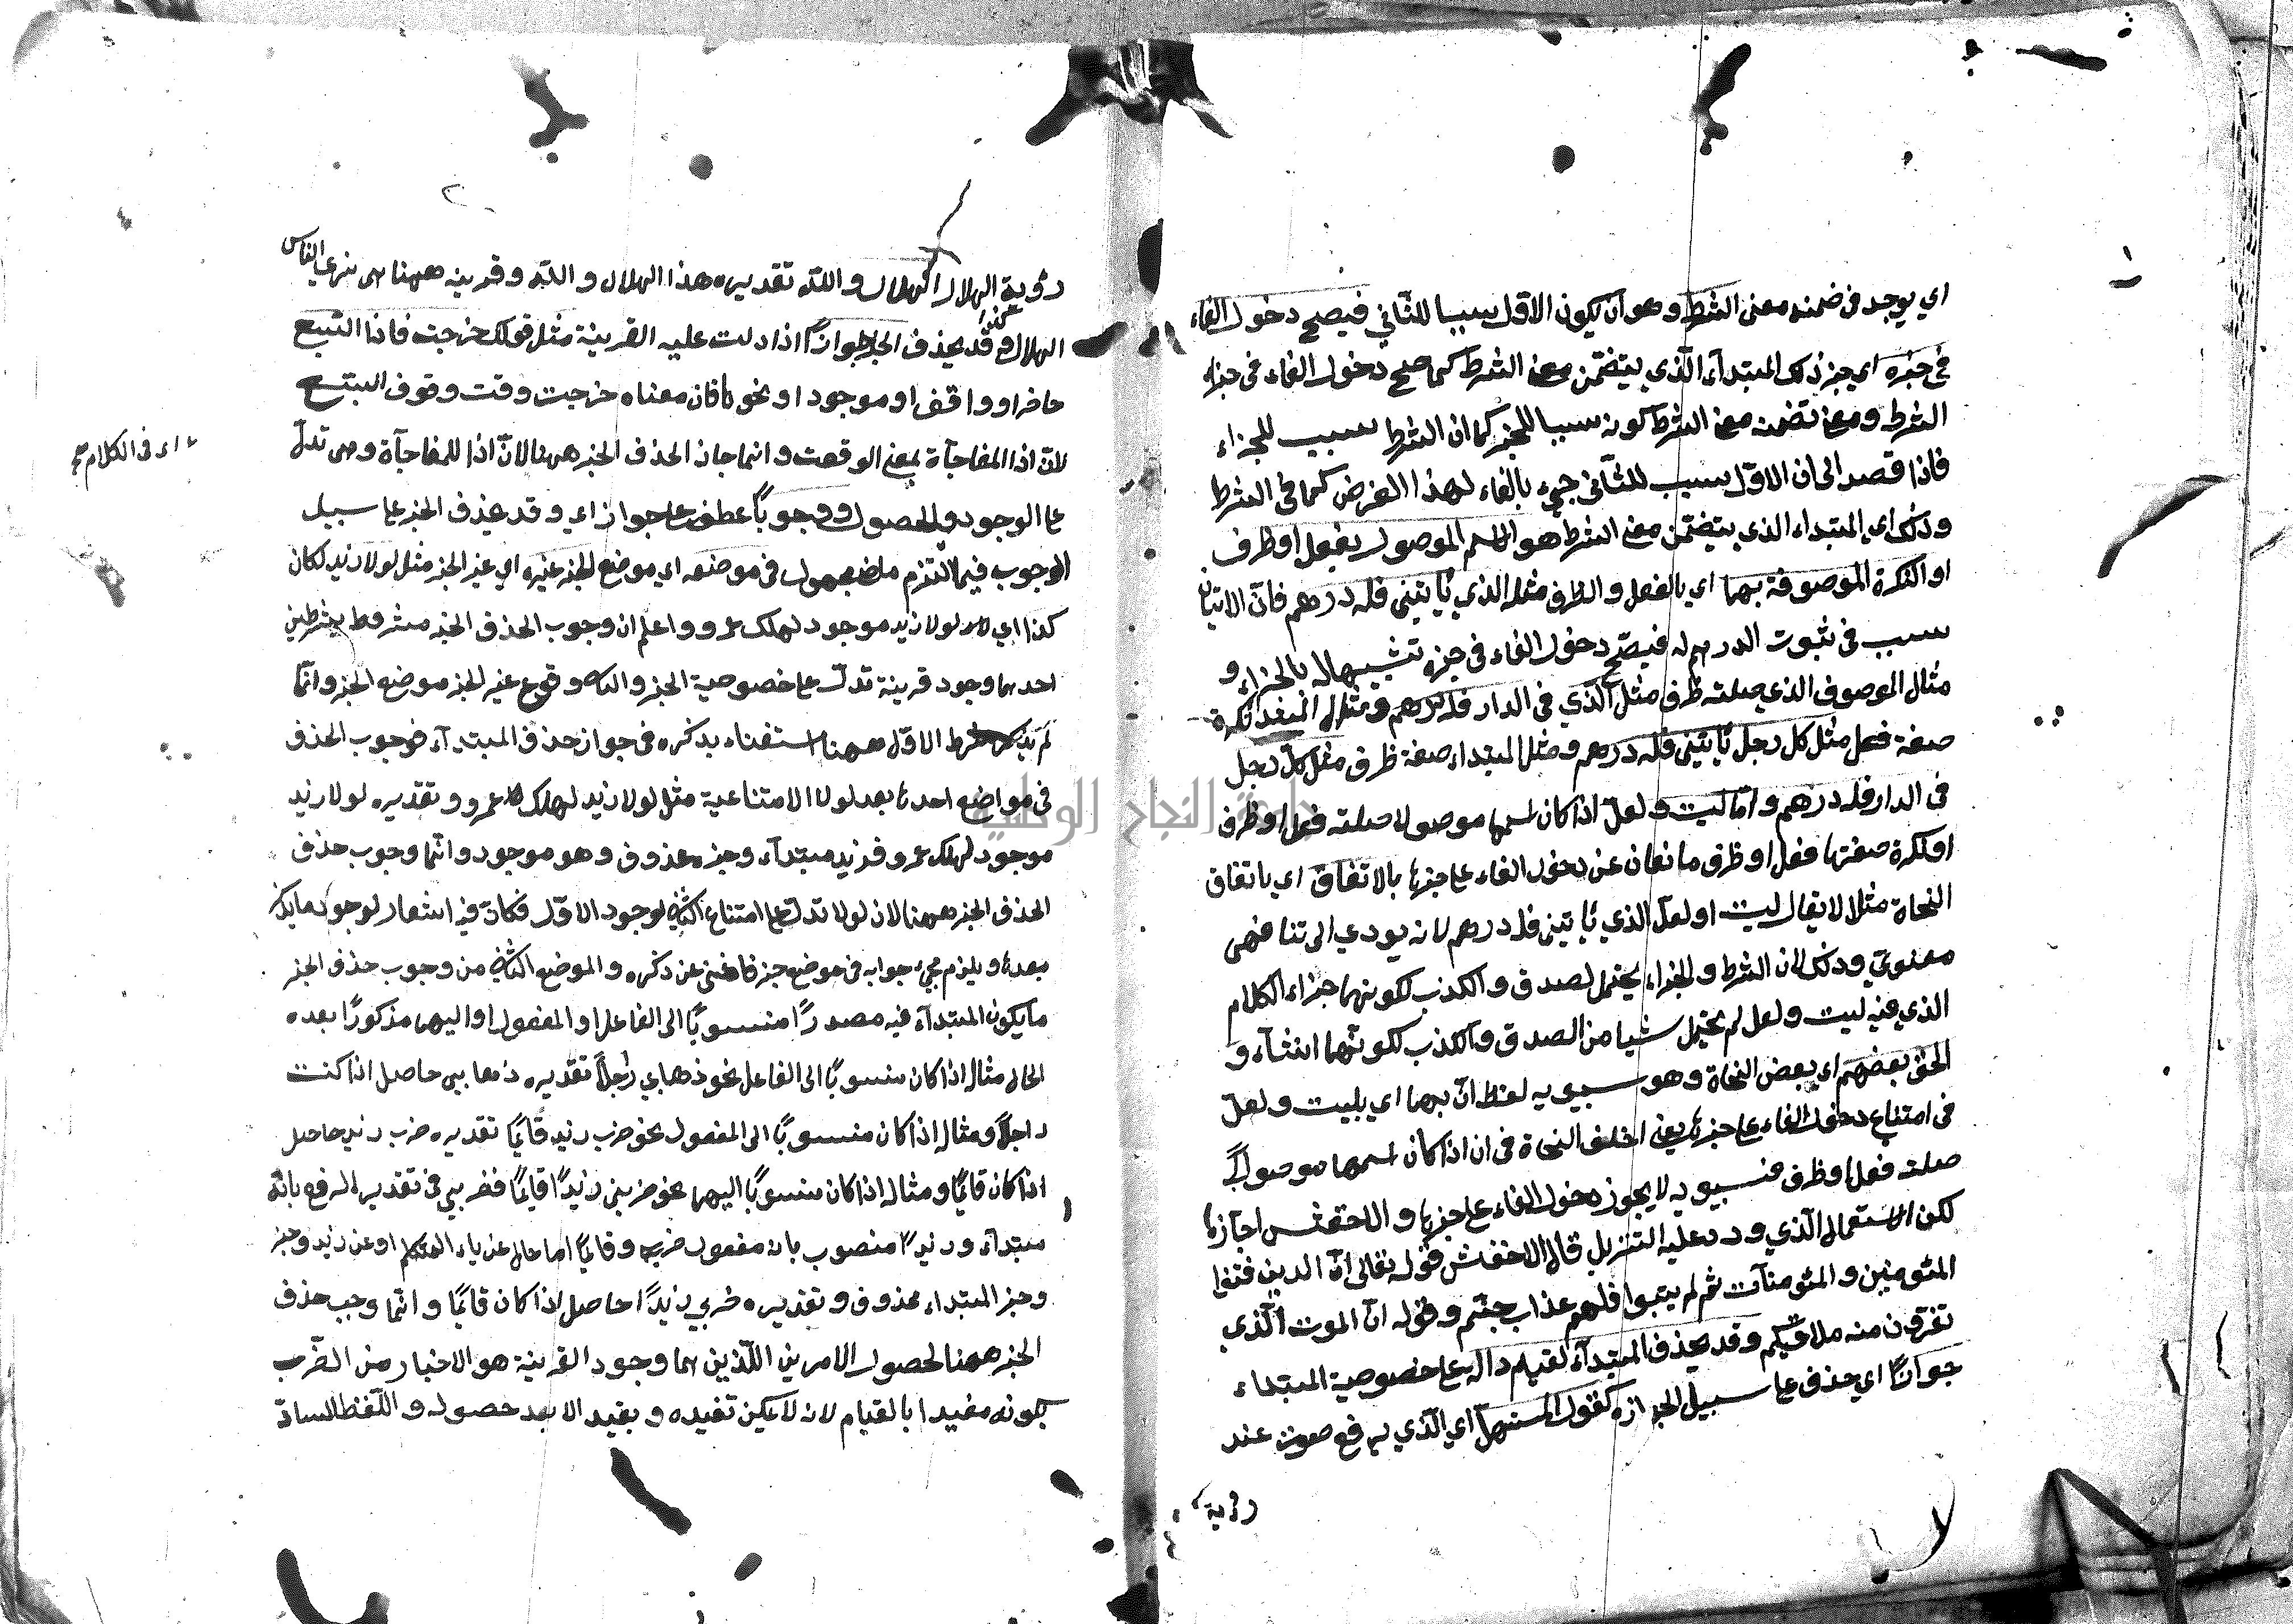 اي يوجد في ضمنه معنى الشرط وهو ان يكون الاول سببا للثاني فيصح دخول الفاء
في خبره اي خبر ذلك المبتدآء الذي يتضمن معنى الشرط كما صح دخول الفاء في جزاء
الشرط ومعنى تضمنه معنى الشرط كونه سببا للخبر كما ان الشرط سبب للجزاء
فاذا قصد الى ان الاول سبب للثاني جيء بالفاء لهذا الغرض كما في الشرط
وذلك اي المبتداء الذي يتضمن معنى الشرط هو الاسم الموصول بفعل او ظرف
او النكرة الموصوفة بهما اي بالفعل والظرف مثله الذي يأتيني فله درهم فان الاتيان
سبب في ثبوت الدرهم له فيصح دخول الفاء في خبره تشبيها له بالجزاء و
مثال الموصوف الذي صلته ظرف مثل الذي في الدار فله درهم ومثال المبتدا نكرة
صفة فعل مثل كل رجل يأتيني فله درهم ومثل المبتداء صفة ظرف مثل كل رجل
في الدار فله درهم واما ليت ولعل اذا كان اسمها موصولا صلته فعل او ظرف
او نكرة صفتها فعل او ظرف مانعان عن دخول الفاء على خبرها بالاتفاق اي باتفاق
النحاة مثلا لا يقال ليت او لعل الذي يأتيني فله درهم لانه يودي الى تناقض
معنوي وذلك لان الشرط والجزاء يحتمل الصدق والكذب لكونهما جزاء الكلام
الذي فيه ليت ولعل لم يحتمل شيا من الصدق والكذب لكونهما انشآء و
الحق بعضهم اي بعض النحاة وهو سيبويه لفظ ان بهما اي بليت ولعل
في امتناع دخول الفاء على خبرها يعني اختلف النحاة في ان اذا كان اسمها موصولا
صلته فعل او ظرف فسيبويه لا يجوز دخول الفاء على خبرها والاخفش اجازه
لكن الاستعمال الذي ورد عليه التنزيل قال الاخفش قوله تعالى ان الذين فتنوا
المئومنين والمئومنآت ثم لم يتوبوا فلهم عذاب جهنم وقوله ان الموت الذي
تفرون منه ملاقيكم وقد يحذف المبتدآء لقيام دالة على خصوصية المبتداء
جوازًا اي حذف على سبيل الجوازه كقول المستهل اي الذي يرفع صوته عند
رؤية
رؤية الهلال الهلال والله تقديره هذا الهلال والله وقرينه ههنا هي نرى الناس
الهلال وقد يحذف الخبر جوازًا اذا دلت عليه القرينة مثل قولك خرجت فاذا السبع
حاضر او واقف او موجود او نحوه فان معناه خرجت وقت وقوف السبع
لان اذا المفاجآة بمعنى الوقت وانما جاز الحذف الخبر ههنا لان اذا للمفاجآة وهي تدل
ء اى في الكلام صح
على الوجود والحصول ووجوبًا عطف على جوازا اي وقد يحذف الخبر على سبيل
الوجوب فيما التزم ماض مجهول في موضعه اي موضع الخبر غيره اي غير الخبر مثل لولا زيد لكان
كذا اي لولا زيد موجود لهلك عمرو واعلم ان وجوب الحذف الخبر مشروط بشرطين
احدهما وجود قرينة تدل على خصوصية الخبر والثاني وقوع غير الخبر موضع الخبر وانما
لم يذكر الشرط الاول ههنا استغناء بذكره في جواز حذف المبتدآء فوجوب الحذف
في مواضع احدها بعد لولا الامتناعية مثل لولا زيد لهلك عمرو وتقديره لولا زيد
موجود لهلك عمرو فزيد مبتدآء وخبره محذوف وهو موجود وانما وجوب حذف
الحذف الخبر ههنا لان لولا تدل على امتناع الثاني لوجود الاول فكان فيه اشعار لوجود ما يذكر
بعده ويلزم مجيء جوابه في موضع خبر فاغنى عن ذكره والموضع الثاني من وجوب حذف الخبر
ما يكون المبتدآء فيه مصدرًا منسوبًا الى الفاعل او المفعول او اليهما مذكورًا بعده
الحال مثاله اذا كان منسوبًا الى الفاعل نحو ذهابي رجلًا تقديره ذهابي حاصل اذا كنت
راجلًا ومثال اذا كان منسوبًا الى المفعول نحو ضرب زيد قايمًا تقديره ضرب زيد حاصل
اذا كان قايمًا ومثاله اذا كان منسوبًا اليهما نحو ضربي زيدًا قايمًا فضربي في تقدير الرفع بانه
مبتدآء وزيدًا منصوب بانه مفعول ضربي وقايمًا اما حال عن ياء المتكلم او عن زيد وخبر
وخبر المبتداء محذوف وتقديره ضربي زيدًا حاصل اذا كان قايمًا وانما وجب حذف
الخبر ههنا لحصول الامرين اللذين هما وجود القرينة هو الاخبار من الضرب
بكونه مفيدا بالقيام لانه لا يمكن تقيده وبقيد الا بعد حصوله واللفظ الساد